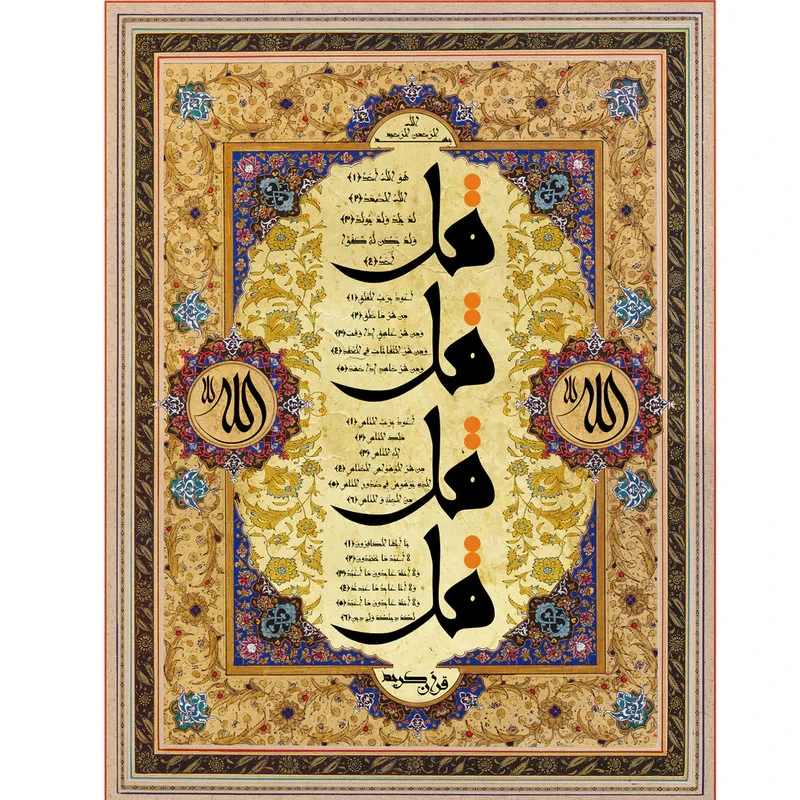 بسم الله
الرحمن الرحيم
قل
هو الله أحد ﴿١﴾
الله الصمد ﴿٢﴾
لم يلد ولم يولد ﴿٣﴾
ولم يكن له كفوا
أحد ﴿٤﴾
قل
أعوذ برب الفلق ﴿١﴾
من شر ما خلق ﴿٢﴾
ومن شر غاسق إذا وقب ﴿٣﴾
ومن شر النفاثات في العقد ﴿٤﴾
ومن شر حاسد إذا حسد ﴿٥﴾
قل
أعوذ برب الناس ﴿١﴾
ملك الناس ﴿٢﴾
إله الناس ﴿٣﴾
من شر الوسواس الخناس ﴿٤﴾
الذي يوسوس في صدور الناس ﴿٥﴾
من الجنة و الناس ﴿٦﴾
قل
يا أيها الكافرون ﴿١﴾
لا أعبد ما تعبدون ﴿٢﴾
ولا أنتم عابدون ما أعبد ﴿٣﴾
ولا أنا عابد ما عبدتم ﴿٤﴾
ولا أنتم عابدون ما أعبد ﴿٥﴾
لكم دينكم ولي دين ﴿٦﴾
الله
الله
قرآن كريم